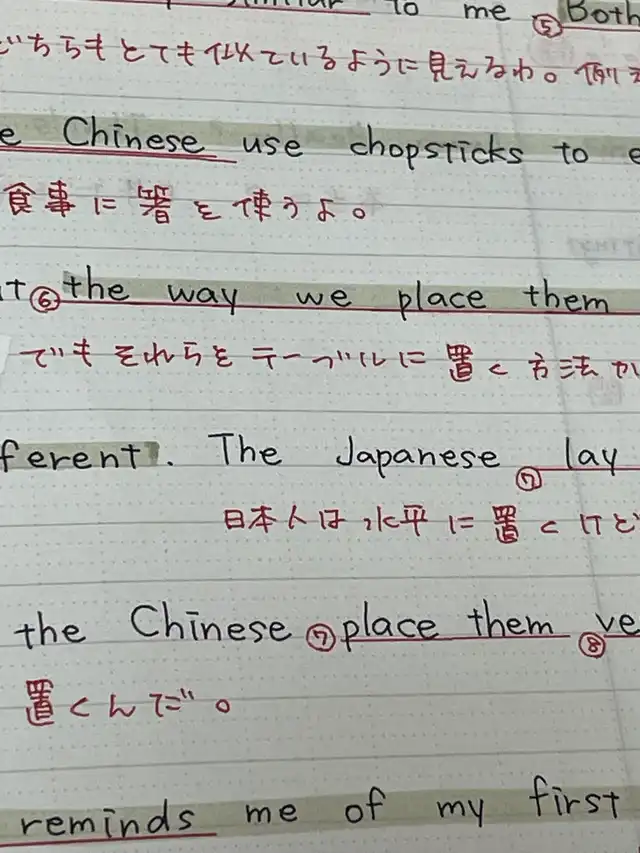 to me ⑤ Both
どちらもとても似ているように見えるわ。例え
Chinese use chopsticks to
食事に箸を使うよ。
⑥ the way we place them
でもそれらをテーブルに置く方法が
ferent. The Japanese ⑦ lay
日本人は水平に置くけど
the Chinese ⑦ place them ⑧ ve
置くんだ。
reminds me of my first